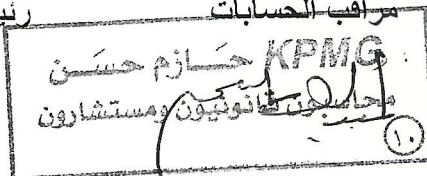 مراقب الحسابات
KPMG حازم حسن
محاسبون قانونيون ومستشارون
(١٠)